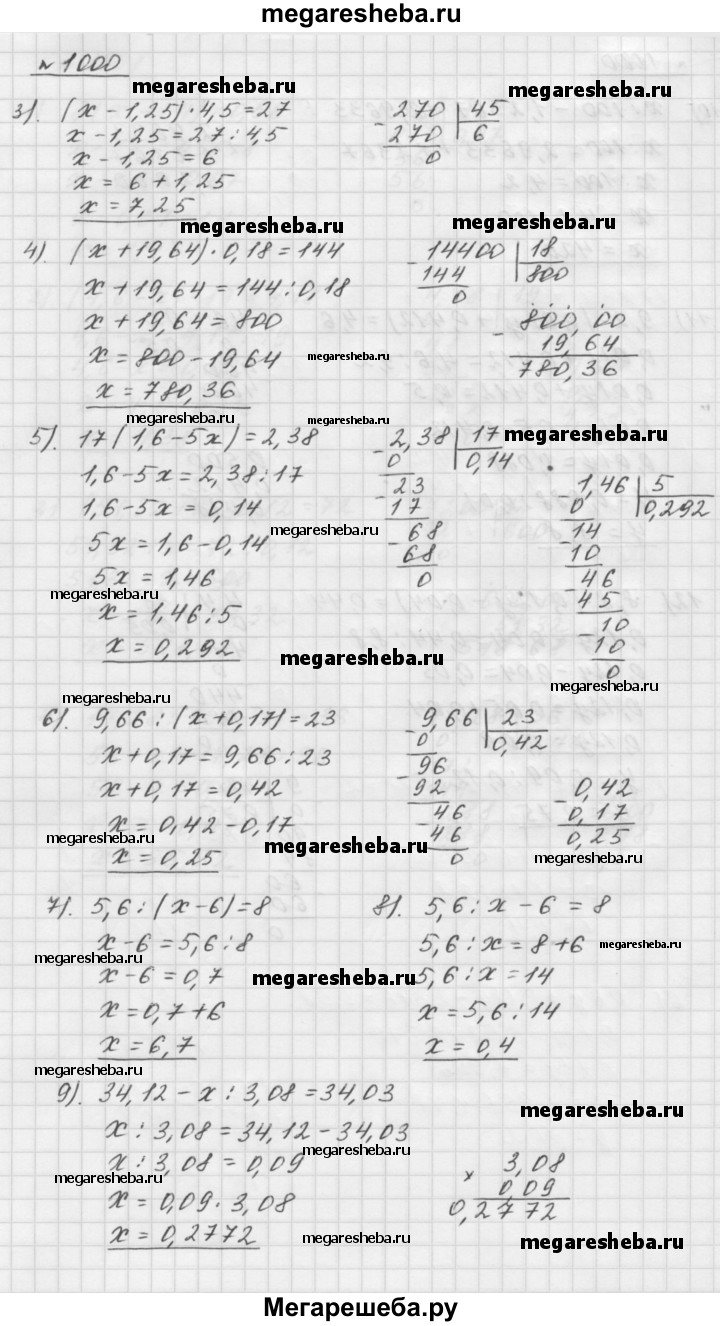 megaresheba.ru
№ 1000
megaresheba.ru
3). (x - 1,25) · 4,5 = 27
x - 1,25 = 27 : 4,5
x - 1,25 = 6
x = 6 + 1,25
x = 7,25
- 270 | 45
270 | 6
0
megaresheba.ru
megaresheba.ru
4). (x + 19,64) · 0,18 = 144
x + 19,64 = 144 : 0,18
x + 19,64 = 800
x = 800 - 19,64
x = 780,36
- 14400 | 18
144 | 800
0
- 800,00
19,64
780,36
megaresheba.ru
megaresheba.ru
megaresheba.ru
5). 17 (1,6 - 5x) = 2,38
1,6 - 5x = 2,38 : 17
1,6 - 5x = 0,14
5x = 1,6 - 0,14
5x = 1,46
x = 1,46 : 5
x = 0,292
- 2,38 | 17
0 | 0,14
- 23
17
- 68
68
0
megaresheba.ru
- 1,46 | 5
0 | 0,292
- 14
10
- 46
45
- 10
10
0
megaresheba.ru
megaresheba.ru
megaresheba.ru
megaresheba.ru
megaresheba.ru
6). 9,66 : (x + 0,17) = 23
x + 0,17 = 9,66 : 23
x + 0,17 = 0,42
x = 0,42 - 0,17
x = 0,25
- 9,66 | 23
0 | 0,42
- 96
92
- 46
46
0
- 0,42
0,17
0,25
megaresheba.ru
megaresheba.ru
megaresheba.ru
7). 5,6 : (x - 6) = 8
x - 6 = 5,6 : 8
x - 6 = 0,7
x = 0,7 + 6
x = 6,7
8). 5,6 : x - 6 = 8
5,6 : x = 8 + 6
5,6 : x = 14
x = 5,6 : 14
x = 0,4
megaresheba.ru
megaresheba.ru
megaresheba.ru
megaresheba.ru
megaresheba.ru
9). 34,12 - x : 3,08 = 34,03
x : 3,08 = 34,12 - 34,03
x : 3,08 = 0,09
x = 0,09 · 3,08
x = 0,2772
megaresheba.ru
megaresheba.ru
megaresheba.ru
x 3,08
0,09
0,2772
megaresheba.ru
megaresheba.ru
Мегарешеба.ру